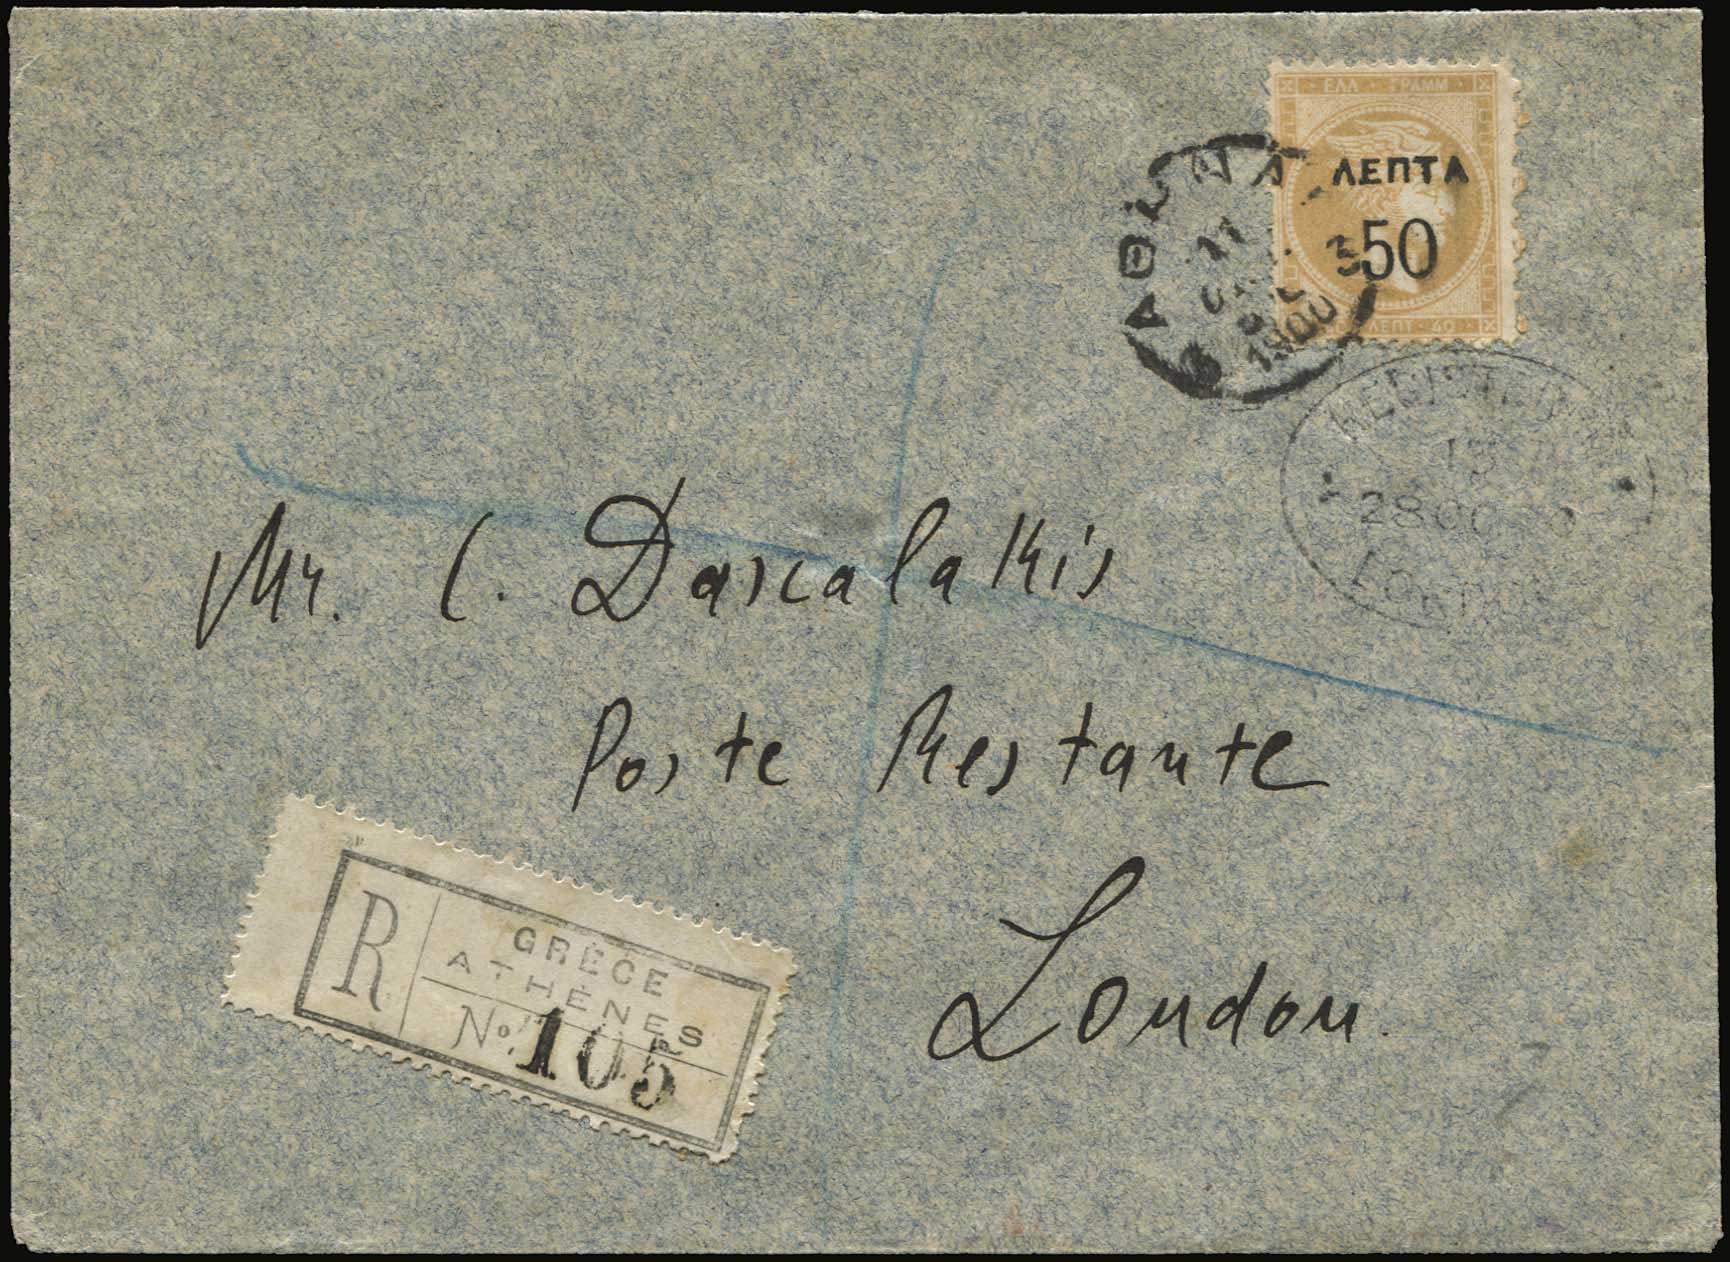 ΕΛΛ ΓΡΑΜΜ
ΛΕΠΤΑ
50
ΛΕΠΤ 40
ΑΘΗΝΑΙ
11
1900
REGISTERED
13
28 OC 00
LONDON
Mr. C. Dascalakis
Poste Restante
London.
R
GRÈCE
ATHÈNES
No. 105